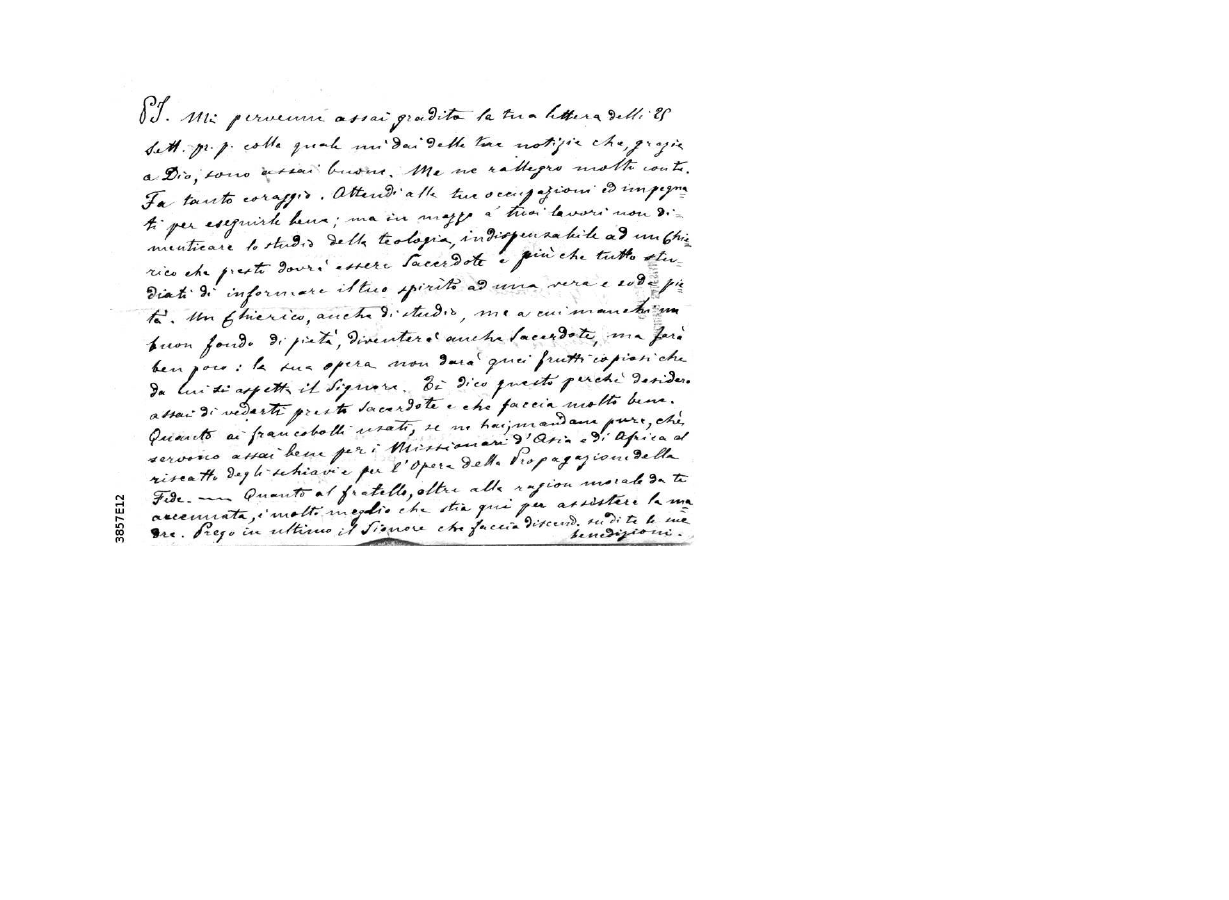 PS. Mi pervenne assai gradita la tua lettera delli 25
Sett. pr. p. colla quale mi dai delle tue notizie che, grazie
a Dio, sono assai buone. Me ne rallegro molto con te.
Fa tanto coraggio. Attendi alle tue occupazioni ed impegna=
ti per eseguirle bene; ma in mezzo a' tuoi lavori non di=
menticare lo studio della teologia, indispensabile ad un Chie=
rico che presto dovrà essere Sacerdote e più che tutto stu=
diati di informare il tuo spirito ad una vera e soda pie=
tà. Un Chierico, anche di studio, ma a cui manchi un
buon fondo di pietà, diventerà anche Sacerdote, ma farà
ben poco: la sua opera non darà quei frutti copiosi che
da lui si aspetta il Signore. Ti dico questo perchè desidero
assai di vederti presto Sacerdote e che faccia molto bene.
Quanto ai francobolli usati, se ne hai, mandane pure, chè,
servono assai bene per i Missionari d'Asia e di Africa al
riscatto degli schiavi e per l'Opera della Propagazione della
Fede. — Quanto al fratello, oltre alla ragion morale da te
accennata, è molto meglio che stia qui per assistere la ma=
dre. Prego in ultimo il Signore che faccia discend. su di te le sue
benedizioni.
3857E12